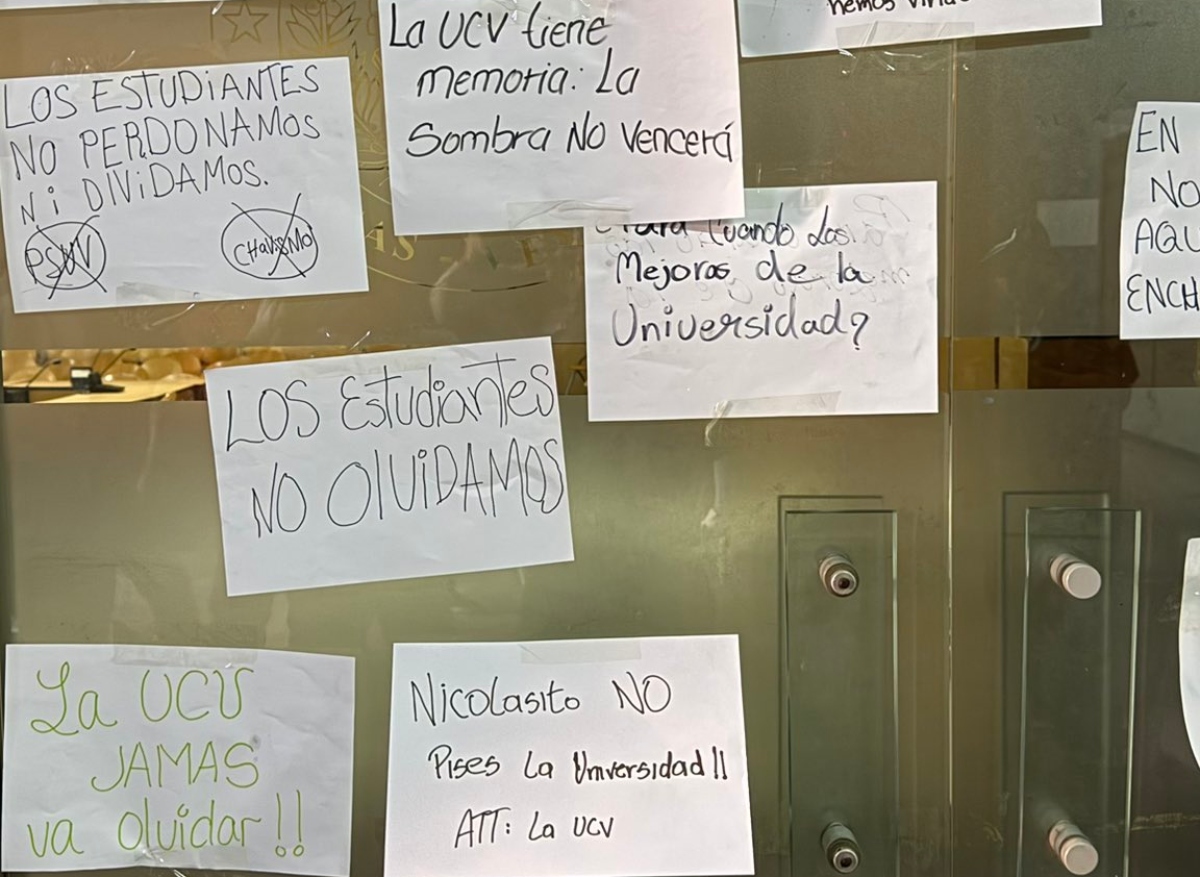 LOS ESTUDIANTES
NO PERDONAMOS
Ni DIVIDAMOS.
PSUV
CHAVISMO
La UCV tiene
memoria: La
Sombra No Vencerá
hemos
Cuando Las
Mejoras de la
Universidad?
EN
NO
AQU
ENCH
LOS Estudiantes
NO OlUiDAMOS
La UCV
JAMAS
va olvidar!!
Nicolasito NO
Pises La Universidad!!
ATT: La UCV